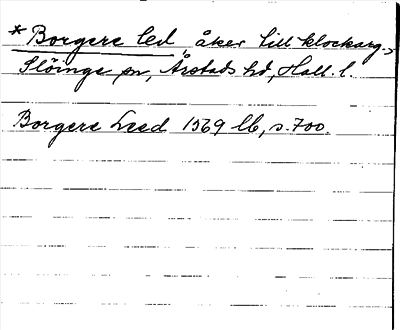 * Borgere led, åker till klockarg.,
Slöinge sn, Årstads hd, Hall. l.
Borgere Leed 1569 lb, s. 700.